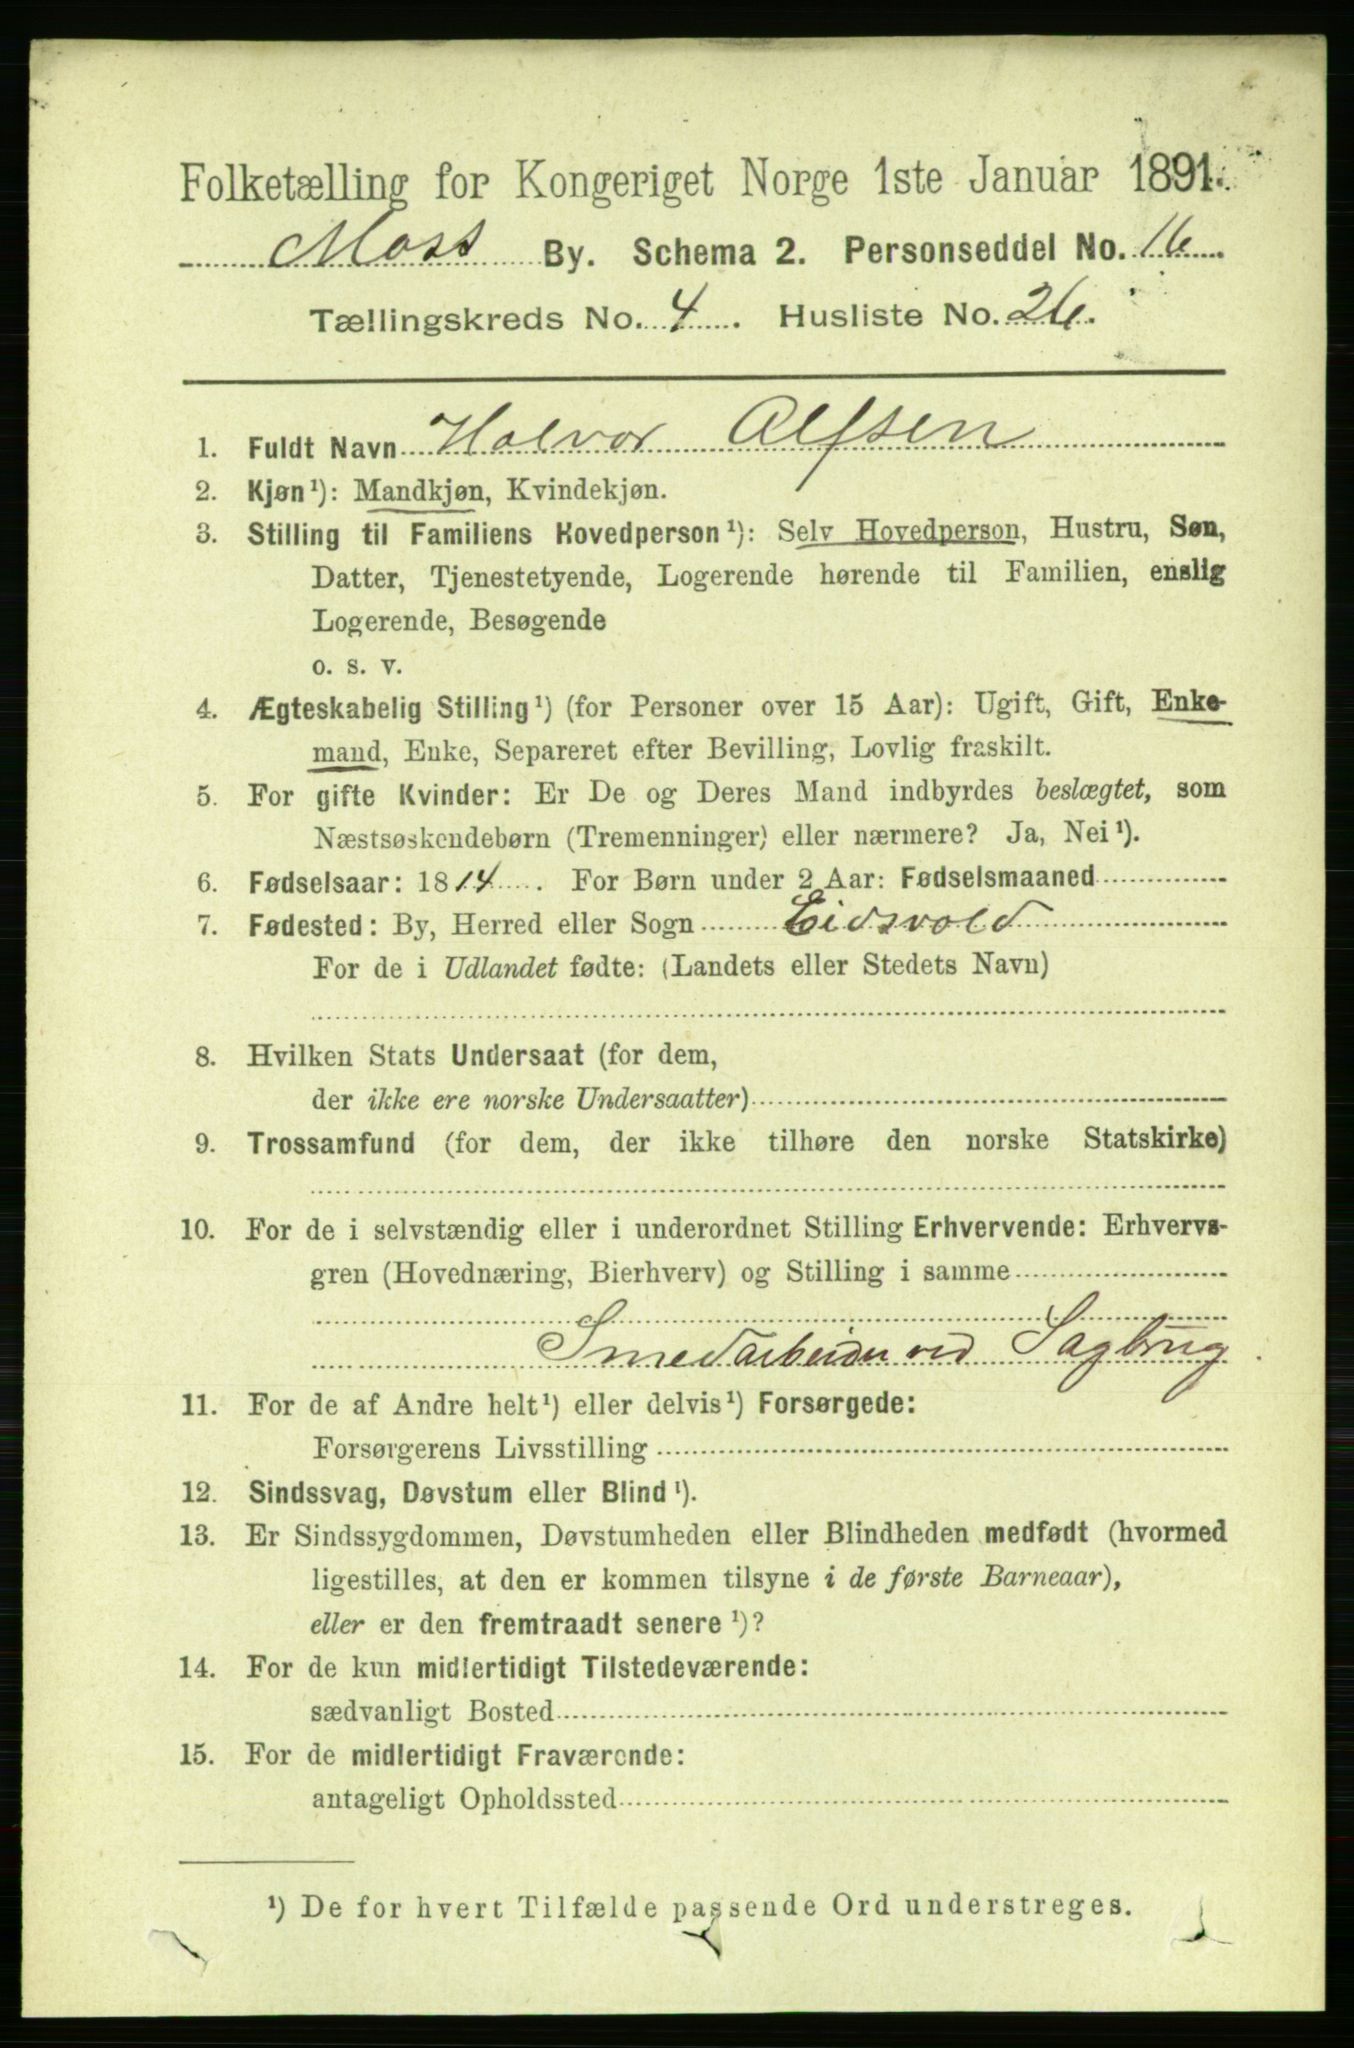 Folketælling for Kongeriget Norge 1ste Januar 1891.
Moss By. Schema 2. Personseddel No. 16
Tællingskreds No. 4. Husliste No. 26.
1. Fuldt Navn Halvor Alfsen
2. Kjøn¹): Mandkjøn, Kvindekjøn.
3. Stilling til Familiens Hovedperson¹): Selv Hovedperson, Hustru, Søn,
Datter, Tjenestetyende, Logerende hørende til Familien, enslig
Logerende, Besøgende
o. s. v.
4. Ægteskabelig Stilling¹) (for Personer over 15 Aar): Ugift, Gift, Enke-
mand, Enke, Separeret efter Bevilling, Lovlig fraskilt.
5. For gifte Kvinder: Er De og Deres Mand indbyrdes beslægtet, som
Næstsøskendebørn (Tremenninger) eller nærmere? Ja, Nei¹).
6. Fødselsaar: 1814. For Børn under 2 Aar: Fødselsmaaned
7. Fødested: By, Herred eller Sogn Eidsvold
For de i Udlandet fødte: (Landets eller Stedets Navn)
8. Hvilken Stats Undersaat (for dem,
der ikke ere norske Undersaatter)
9. Trossamfund (for dem, der ikke tilhøre den norske Statskirke)
10. For de i selvstændig eller i underordnet Stilling Erhvervende: Erhvervs-
gren (Hovednæring, Bierhverv) og Stilling i samme
Smedarbeider ved Sagbrug
11. For de af Andre helt¹) eller delvis¹) Forsørgede:
Forsørgerens Livsstilling
12. Sindssvag, Døvstum eller Blind¹).
13. Er Sindssygdommen, Døvstumheden eller Blindheden medfødt (hvormed
ligestilles, at den er kommen tilsyne i de første Barneaar),
eller er den fremtraadt senere¹)?
14. For de kun midlertidigt Tilstedeværende:
sædvanligt Bosted
15. For de midlertidigt Fraværende:
antageligt Opholdssted
¹) De for hvert Tilfælde passende Ord understreges.